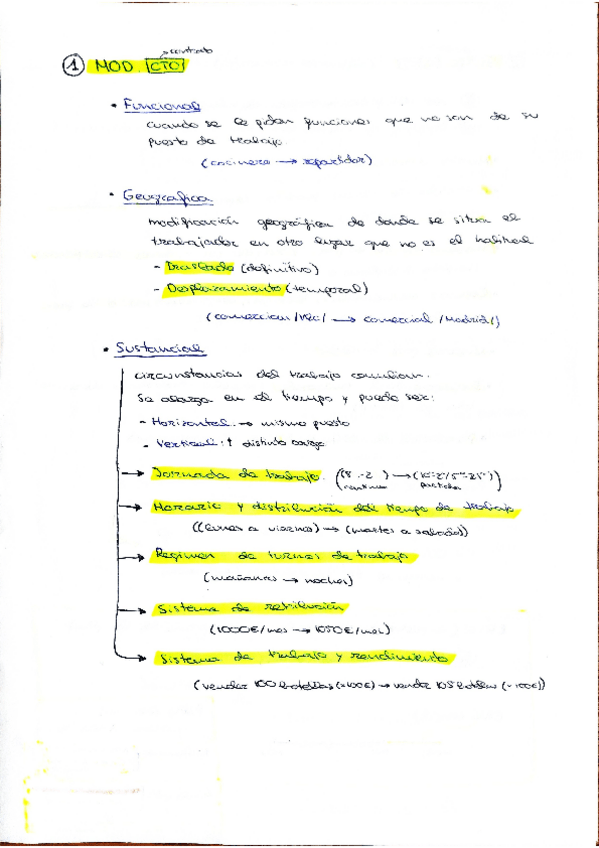 contrato
① MOD. CTO
• Funcional
cuando se le piden funciones que no son de su
puesto de trabajo
(cocinero → repartidor)
• Geografica
modificación geográfica de donde se situa el
trabajador en otro lugar que no es el habitual
- Traslado (definitivo)
- Desplazamiento (temporal)
(comercial → comercial /Madrid/)
• Sustancial
circunstancias del trabajo cambian.
Se alarga en el tiempo y puede ser:
- Horizontal → mismo puesto
- Vertical: ↑ distinto cargo
→ Jornada de trabajo.
→ Horario y distribución del tiempo de trabajo
(lunes a viernes) → (martes a sabados)
→ Regimen de turnos de trabajo
(mañanas → noches)
→ Sistema de retribución
(1000€/mes → 1050€/mes)
→ Sistema de trabajo y rendimiento
(vender 100 botellas (+100€) → vender 105 botellas (-100€))